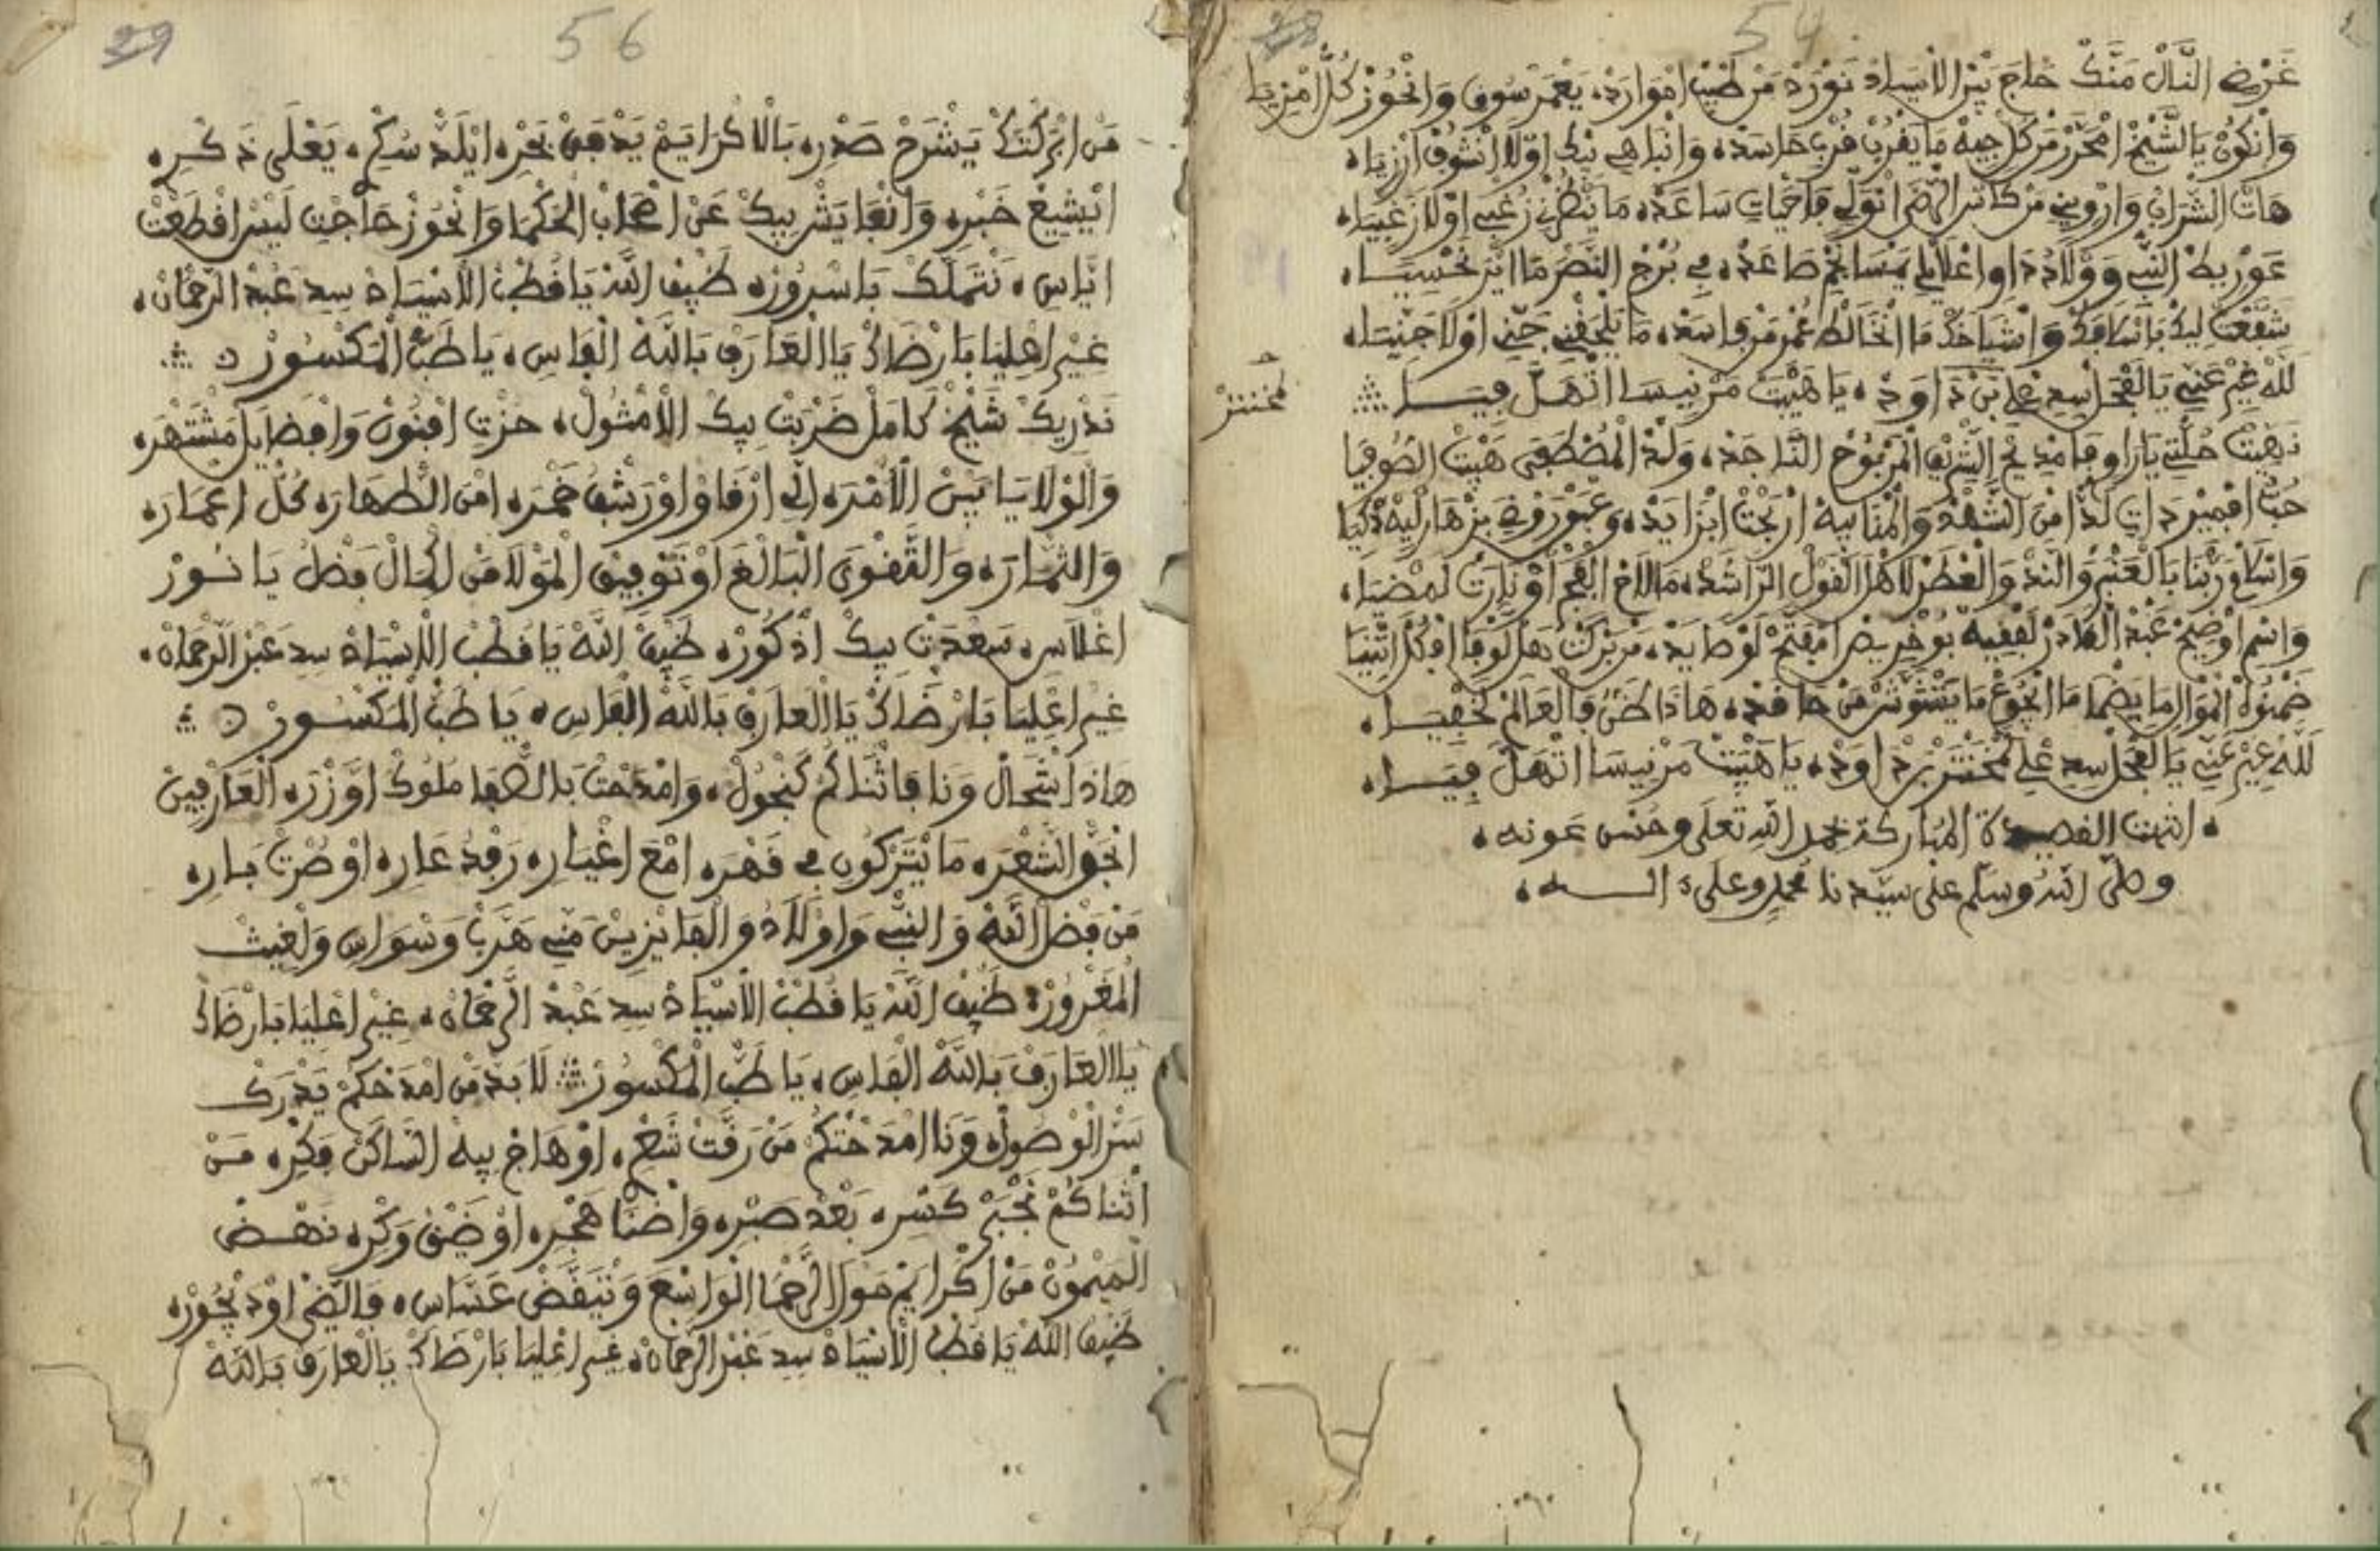 28
54
غرضي النال منك حاج بين الاسياد نورد من طيب اموارده يعمر سوقي وانحوز كل امزيا
وانكون يالشيخ امحرر من كل جيه ما يقرب قرب حاسده وانباهي بيك اولا انشوف ارزيا
هات الشراب وارويني من كاس الرضى انولي فاحمات ساعده ما ينظرني زغبي اولا زغبيا
عوريط النبي وولادو او اغلامي يمسا نجم صاعده في برج النصر ما اير نحسيا
شفعت ليك باسلافك واشياخك ما انخالط غمر من فاسده ما يلحقني جني اولا جنيا
لله غير عني يالفحل سيد علي بن داود يا هيبت مرنيسا اتهل فيا
محنتر
نهيت حلتي ياراوي فامديح الشريف المربوح الناجده ولد المصطفى هيبت الصوفيا
حب اقمير دات لدا من الشهد والمنا بيه اربحت ابزايده وعبور روضي بزهار ليه دكيا
واسلام ربنا بالعنبر والند والعطر لاهل القول الراشده ما لاح الفجر او نارت لمضيا
واسم اوضيح عبد القادر لفقيه بوخريص امفتح لوصايده من بركت هل لوفا افكل اثنيا
ضمنوه الموالي ما يضما ما انجوع ما يتشوش من حافده هاذا ظني فالعالم لخفيا
لله غير عني يالفحل سيد علي محنتر بن داود يا هيبت مرنيسا اتهل فيا
انتهت القصيدة المباركة بحمد الله تعلى وحسن عونه
وصلى الله وسلم على سيدنا محمد وعلى اله
29
56
من ابركتك يشرح صدره بالاكرايم يدفق بحره ايلد سكره يعلى ذكره
ايشيع خبره وانعا يشر بيك عن اصحاب الحكما وانحوز حاجت ليس اقطعت
اياس نتملك باسروره ضيف الله يا قطب الاسياد سيد عبد الرحمان
غير اعليا بارضاك يا العارف بالله الفاس يا طب المكسور
ندريك شيخ كامل ضربت بيك الامثول حزت افنون وافضايل مشتهره
والولايا بين الامره اني ارقاو اورشف خمره امن الطهاره كل اعماره
والثماره والتقوى البالغ اوتوفيق المولا من الحال بفضل يا نور
اغلاس سعدت بيك ادكوره ضيف الله يا قطب الاسياد سيد عبد الرحمان
غير اعليا بارضاك يا العارف بالله الفاس يا طب المكسور
هاذا شحال ونا فاثناكم كنجول وامدحت بالصفا ملوك اوزره العارفين
انجو الشعره ما يتركون في قهره امع اغياره رفد عاره اوصرت باره
من فضل الله والنبي واولاد والفايزين مني هرب وسواس ولغيت
المغرور ضيف الله يا قطب الاسياد سيد عبد الرحمان غير اعليا بارضاك
يا العارف بالله الفاس يا طب المكسور لا بد من امدحكم يدرك
سر الوصول ونا امدحتكم من رقت شعر اوهاج بيه الساكن فكره من
اثناكم نجبر كسره بعد صبره واضنا هجره اوضيق وكره نهض
الميمون من اكرايم مولا الرحما الواسع وتيقض عساس فالضي اوديجوره
ضيف الله يا قطب الاسياد سيد عبد الرحمان غير اعليا بارضاك يالعارف بالله